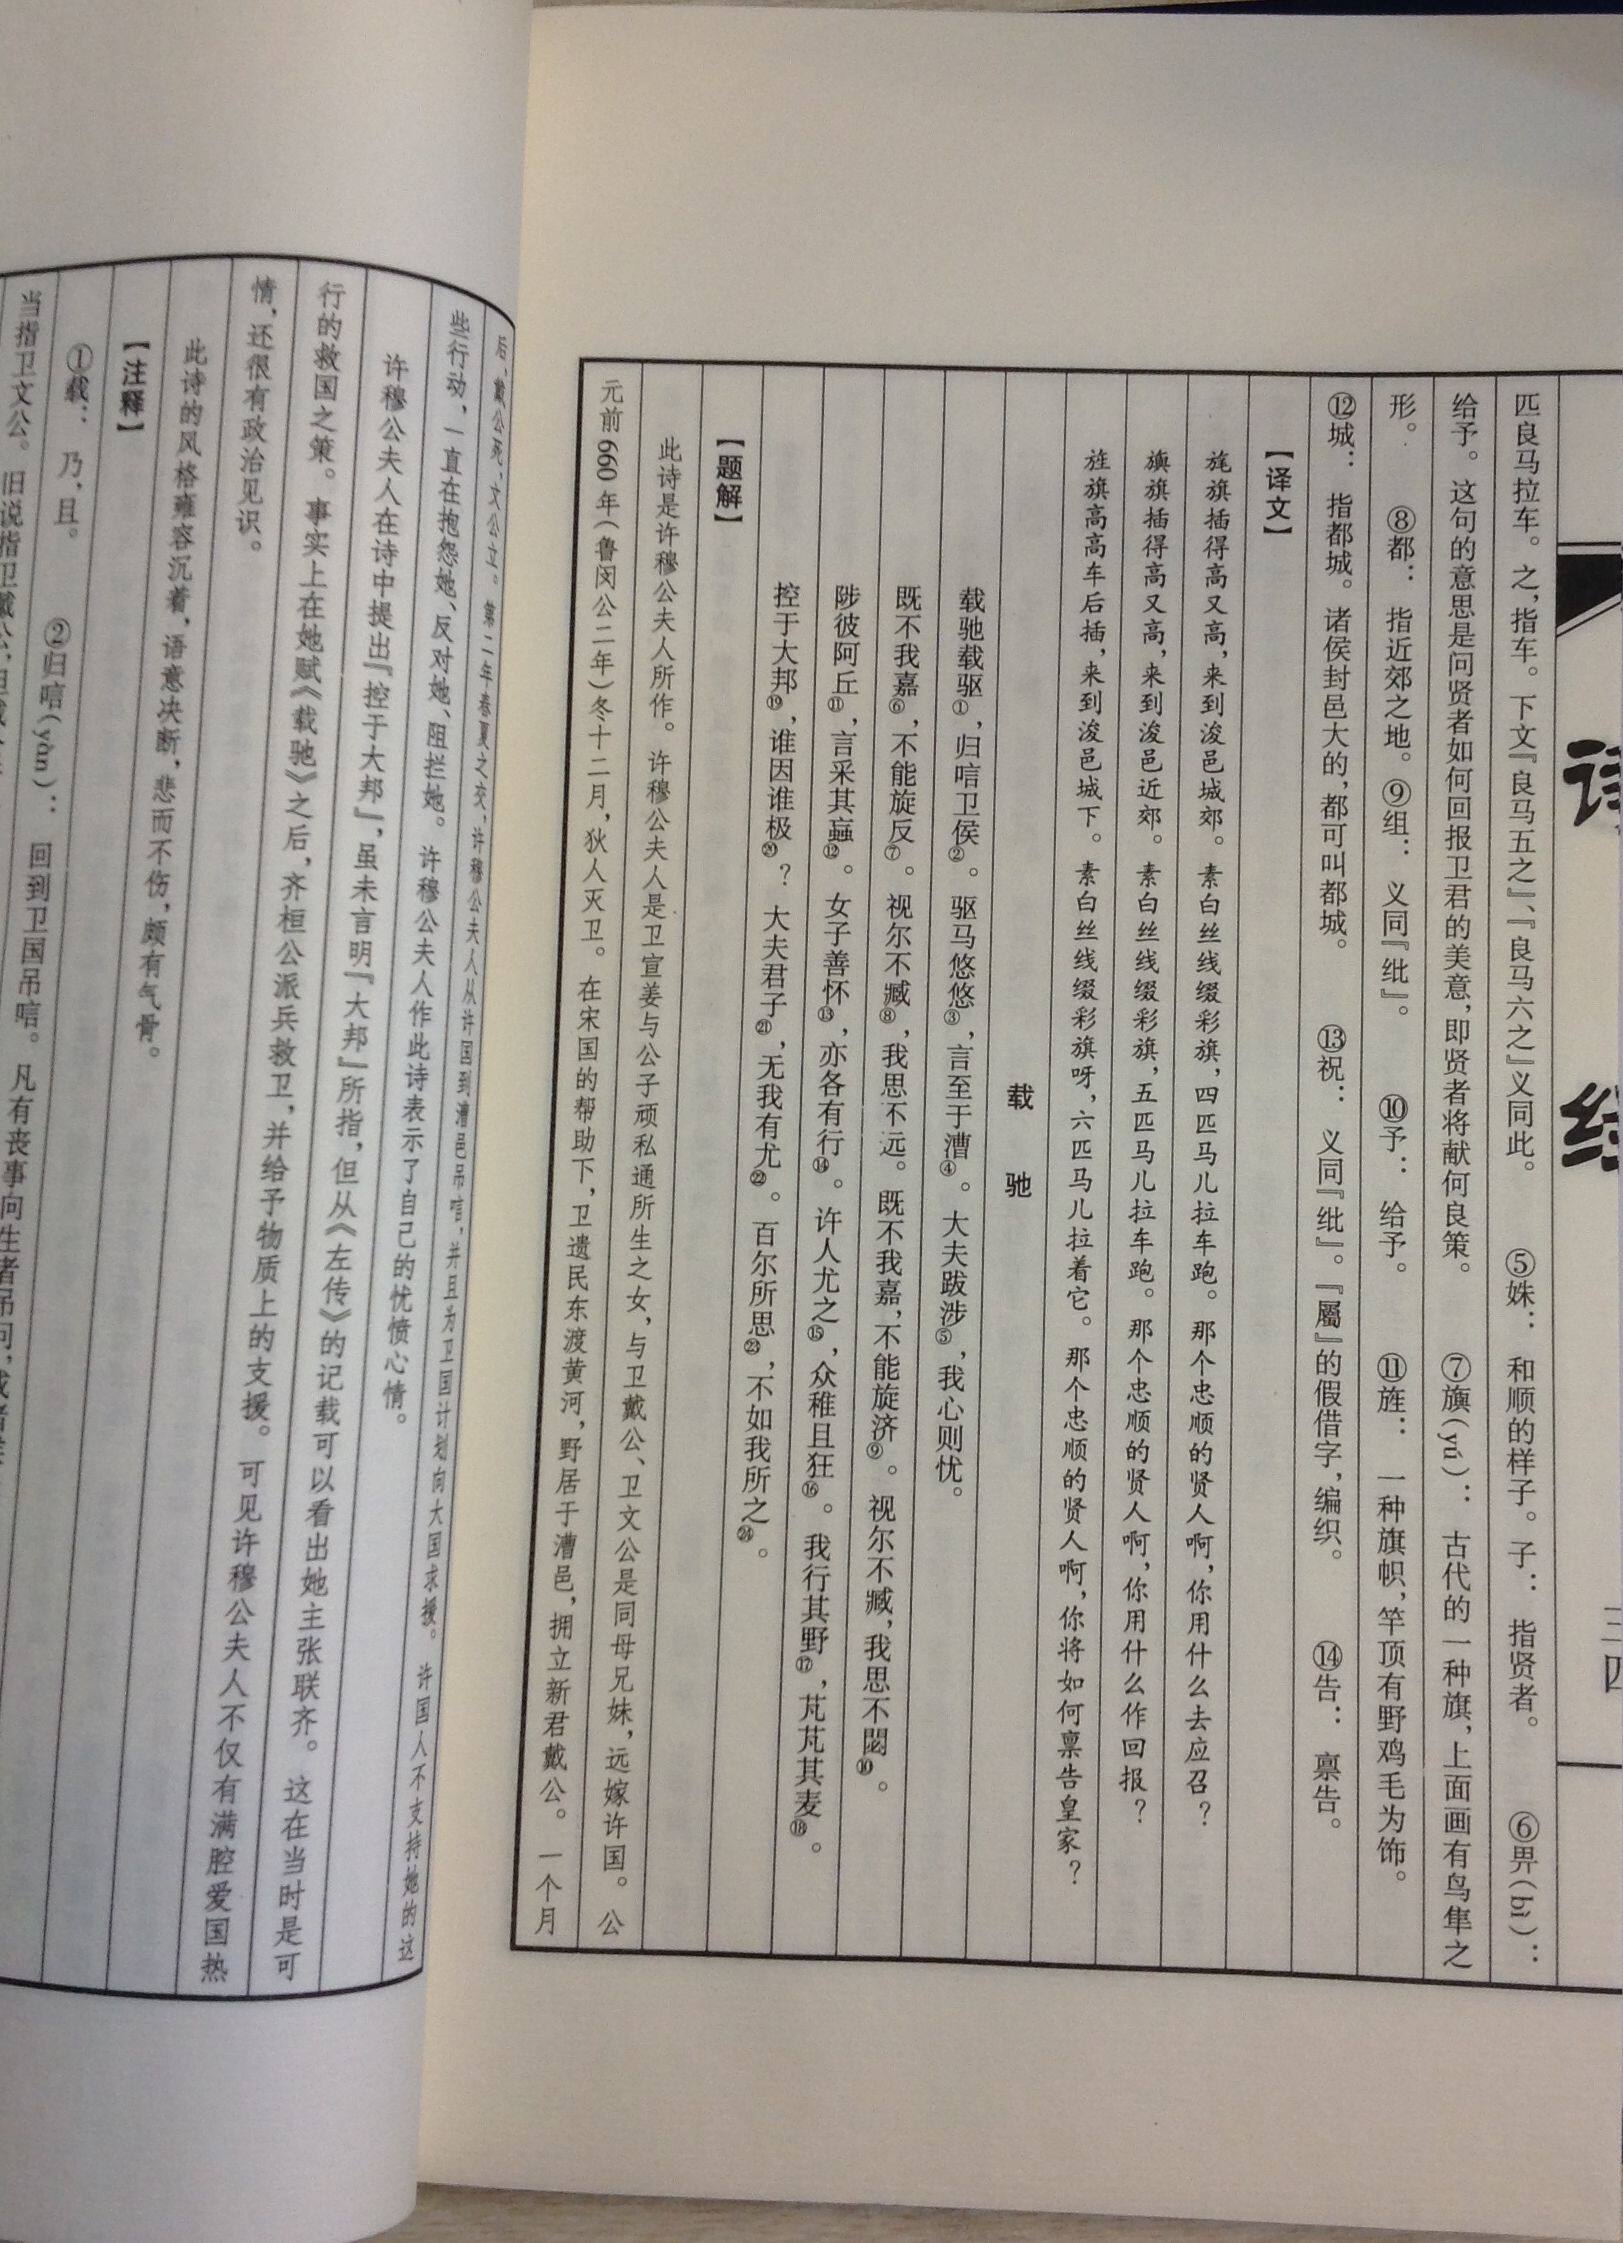 诗
经
三四
匹良马拉车。之,指车。下文『良马五之』、『良马六之』义同此。 ⑤姝: 和顺的样子。子: 指贤者。 ⑥畀(bì):
给予。这句的意思是问贤者如何回报卫君的美意,即贤者将献何良策。 ⑦旟(yú): 古代的一种旗,上面画有鸟隼之
形。 ⑧都: 指近郊之地。⑨组: 义同『纰』。 ⑩予: 给予。 ⑪旌: 一种旗帜,竿顶有野鸡毛为饰。
⑫城: 指都城。诸侯封邑大的,都可叫都城。 ⑬祝: 义同『纰』。『屬』的假借字,编织。 ⑭告: 禀告。
【译文】
旄旗插得高又高,来到浚邑城郊。素白丝线缀彩旗,四匹马儿拉车跑。那个忠顺的贤人啊,你用什么去应召?
旟旗插得高又高,来到浚邑近郊。素白丝线缀彩旗,五匹马儿拉车跑。那个忠顺的贤人啊,你用什么作回报?
旌旗高高车后插,来到浚邑城下。素白丝线缀彩旗呀,六匹马儿拉着它。那个忠顺的贤人啊,你将如何禀告皇家?
载 驰
载驰载驱①,归唁卫侯②。驱马悠悠③,言至于漕④。大夫跋涉⑤,我心则忧。
既不我嘉⑥,不能旋反⑦。视尔不臧⑧,我思不远。既不我嘉,不能旋济⑨。视尔不臧,我思不閟⑩。
陟彼阿丘⑪,言采其蝱⑫。女子善怀⑬,亦各有行⑭。许人尤之⑮,众稚且狂⑯。我行其野⑰,芃芃其麦⑱。
控于大邦⑲,谁因谁极⑳?大夫君子㉑,无我有尤㉒。百尔所思㉓,不如我所之㉔。
【题解】
此诗是许穆公夫人所作。许穆公夫人是卫宣姜与公子顽私通所生之女,与卫戴公、卫文公是同母兄妹,远嫁许国。公
元前660年(鲁闵公二年)冬十二月,狄人灭卫。在宋国的帮助下,卫遗民东渡黄河,野居于漕邑,拥立新君戴公。一个月
后,戴公死,文公立。第二年春夏之交,许穆公夫人从许国到漕邑吊唁,并且为卫国计划向大国求援。许国人不支持她的这
些行动,一直在抱怨她、反对她、阻拦她。许穆公夫人作此诗表示了自己的忧愤心情。
许穆公夫人在诗中提出『控于大邦』,虽未言明『大邦』所指,但从《左传》的记载可以看出她主张联齐。这在当时是可
行的救国之策。事实上在她赋《载驰》之后,齐桓公派兵救卫,并给予物质上的支援。可见许穆公夫人不仅有满腔爱国热
情,还很有政治见识。
此诗的风格雍容沉着,语意决断,悲而不伤,颇有气骨。
【注释】
①载: 乃,且。 ②归唁(yàn): 回到卫国吊唁。凡有丧事向生者吊问,或者
当指卫文公。 旧说指卫戴公,